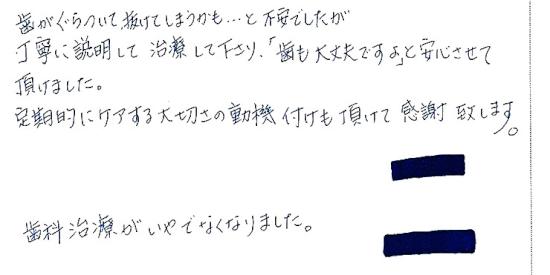 歯がぐらついて、抜けてしまうかも…と不安でしたが
丁寧に説明して治療して下さり、「歯も大丈夫ですよ」と安心させて
頂けました。
定期的にケアする大切さの動機付けも頂けて感謝致します。
歯科治療がいやでなくなりました。